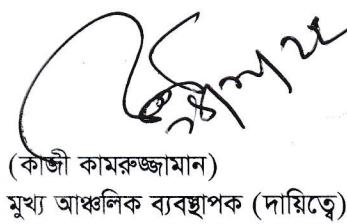 (কাজী কামরুজ্জামান)
মুখ্য আঞ্চলিক ব্যবস্থাপক (দায়িত্বে)